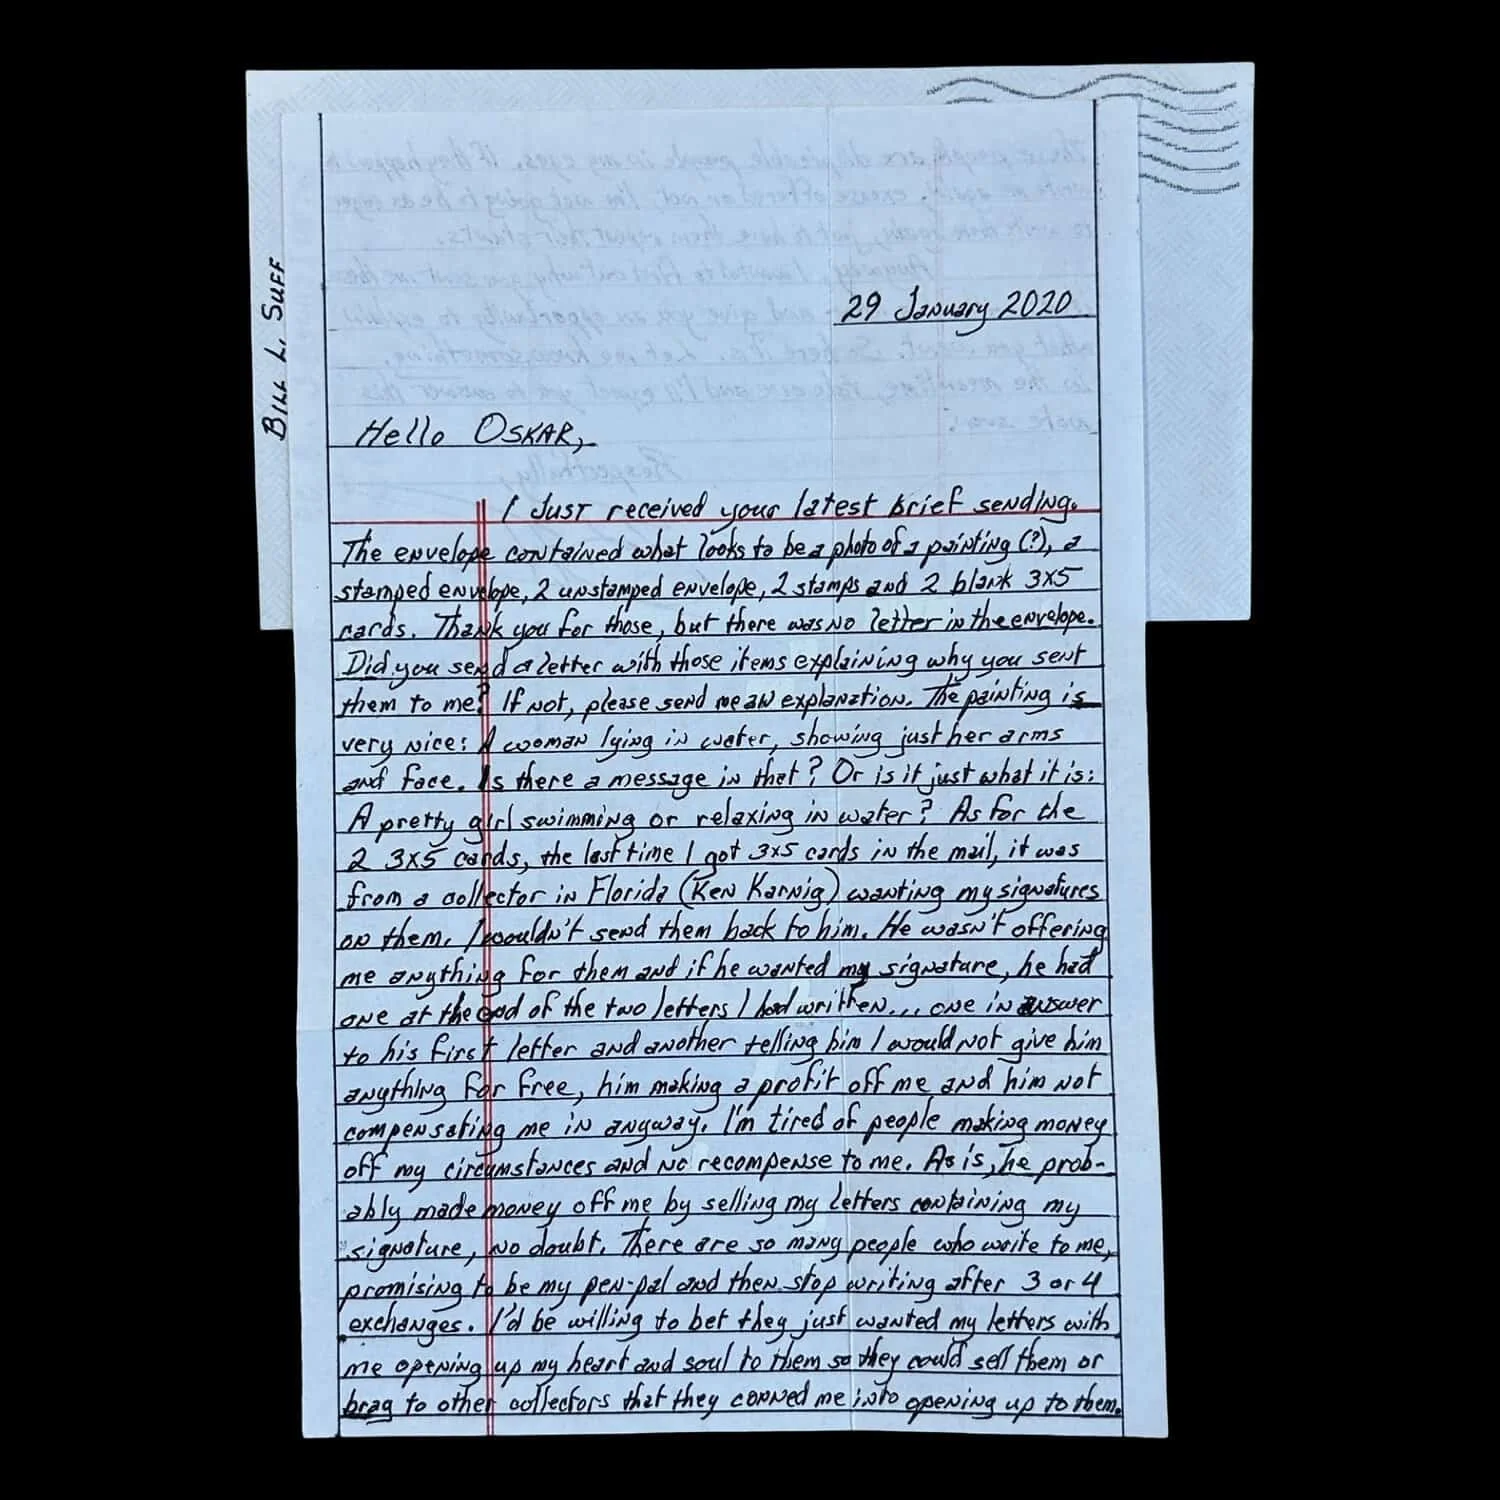 BILL L. SUFF
29 January 2020
Hello OSKAR,
I Just received your latest brief sending.
The envelope contained what looks to be a photo of a painting (?), a
stamped envelope, 2 unstamped envelope, 2 stamps and 2 blank 3x5
cards. Thank you for those, but there was no letter in the envelope.
Did you send a letter with those items explaining why you sent
them to me? If not, please send me an explanation. The painting is
very nice: A woman lying in water, showing just her arms
and face. Is there a message in that? Or is it just what it is:
A pretty girl swimming or relaxing in water? As for the
2 3x5 cards, the last time I got 3x5 cards in the mail, it was
from a collector in Florida (Ken Karnig) wanting my signatures
on them. I wouldn't send them back to him. He wasn't offering
me anything for them and if he wanted my signature, he had
one at the end of the two letters I had written... one in answer
to his first letter and another telling him I would not give him
anything for free, him making a profit off me and him not
compensating me in anyway. I'm tired of people making money
off my circumstances and no recompense to me. As is, he prob-
ably made money off me by selling my letters containing my
signature, no doubt. There are so many people who write to me,
promising to be my pen-pal and then stop writing after 3 or 4
exchanges. I'd be willing to bet they just wanted my letters with
me opening up my heart and soul to them so they could sell them or
brag to other collectors that they conned me into opening up to them.